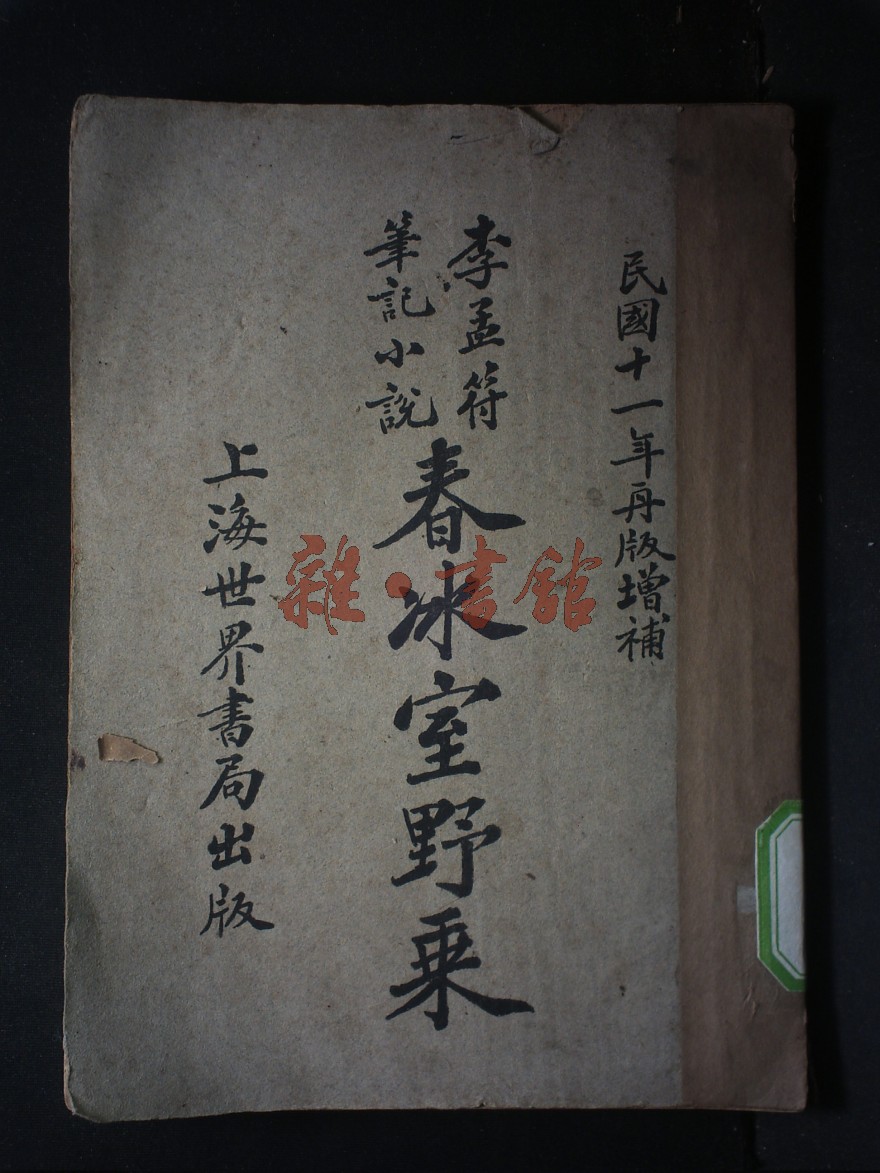 民國十一年再版增補
李孟符
筆記小説
春冰室野乗
上海世界書局出版
雜·書館